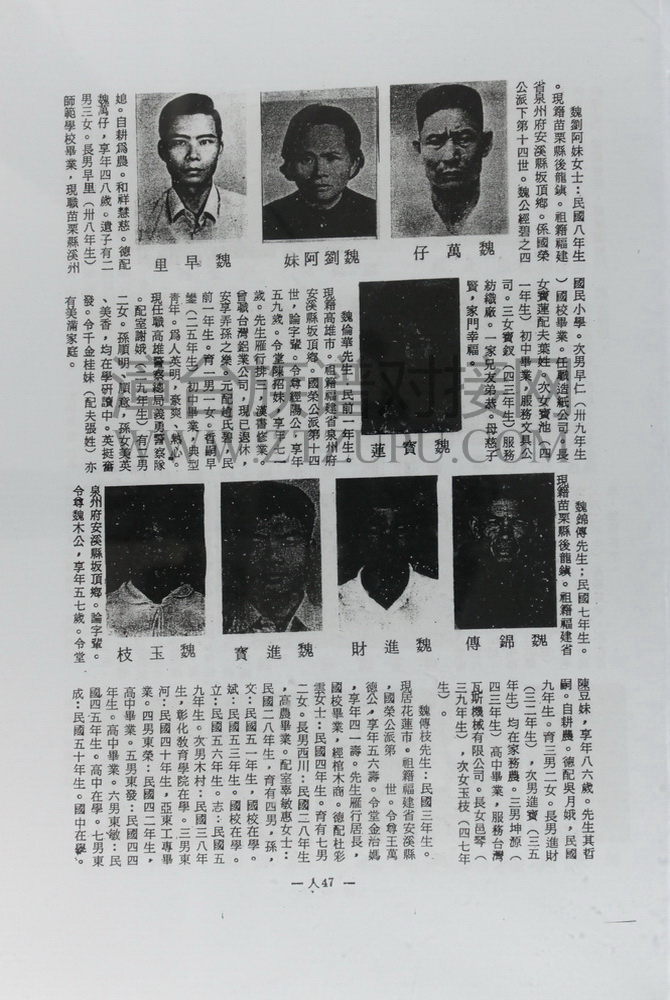 魏劉阿妹女士：民國八年生
。現籍苗栗縣後龍鎮。祖籍福建
省泉州府安溪縣坂頂鄉。係國榮
公派下第十四世。魏公經碧之四
魏萬仔
魏劉阿妹
魏早里
媳。自耕爲農。和祥慧慈。德配
魏萬仔，享年四八歲。遺子有二
男三女。長男早里（卅八年生）
師範學校畢業，現職苗栗縣溪州
國民小學。次男早仁（卅九年生
）國校畢業。任職造紙公司。長
女寶蓮配夫葉姓。次女寶池（四
一年生）初中畢業，服務文具公
司。三女寶釵（四三年生）服務
紡織廠。一家兄友弟恭，母慈子
賢，家門幸福。
魏寶蓮
魏倫華先生：民前一年生。
現籍高雄市。祖籍福建省泉州府
安溪縣坂頂鄉。國榮公派第十四
世，論字輩。令尊經陽公，享年
五九歲。令堂陳招妹，享年七二
歲。先生雁行排三，漢書修業。
曾職台灣鋁業公司，現已退休，
安享弄孫之樂。元配趙氏碧，民
前一年生。育一男一女。哲嗣早
鑾（二五年生）初中畢業，典型
青年。爲人英明，豪爽、熱心。
現任職高雄警察總局義勇警察隊
。配室謝娥（二九年生）有二男
二女。孫順明、順意，孫女美英
、美香，均在學研讀中。英挺奮
發。令千金桂妹（配夫張姓）亦
有美滿家庭。
魏錦傳先生：民國七年生。
現籍苗栗縣後龍鎮。祖籍福建省
魏錦傳
魏進財
魏進寶
魏玉枝
泉州府安溪縣坂頂鄉。論字輩。
令尊魏木公，享年五七歲。令堂
陳豆妹，享年八六歲。先生其哲
嗣。自耕農。德配吳月娥，民國
九年生。育三男二女。長男進財
（三二年生），次男進寶（三五
年生）均在家務農。三男坤源（
四三年生）高中畢業，服務台灣
瓦斯機械有限公司。長女邑琴（
三九年生），次女玉枝（四七年
生）。
魏傳枝先生：民國三年生。
現居花蓮市。祖籍福建省安溪縣
，國榮公派第　世。令尊王萬
德公，享年五六壽。令堂金治媽
，享年四一壽。先生雁行居長，
國校畢業，經棺木商。德配杜彩
雲女士：民國四年生。育有七男
二女。長男西川：民國二八年生
，高農畢業。配室辜敏惠女士：
民國二八年生，育有四男，孫，
文：民國五一年生，國校在學。
斌：民國五三年生。國校在學。
立：民國五六年生。志：民國五
九年生。次男木村：民國三八年
生，彰化教育學院在學。三男東
河：民國四十年生，亞東工專畢
業。四男東榮：民國四二年生，
高中畢業。五男東發：民國四四
年生。高中畢業。六男東敏：民
國四五年生。高中在學。七男東
成：民國五十年生。國中在學。
— 人47 —
WWW.ZTUPU.COM